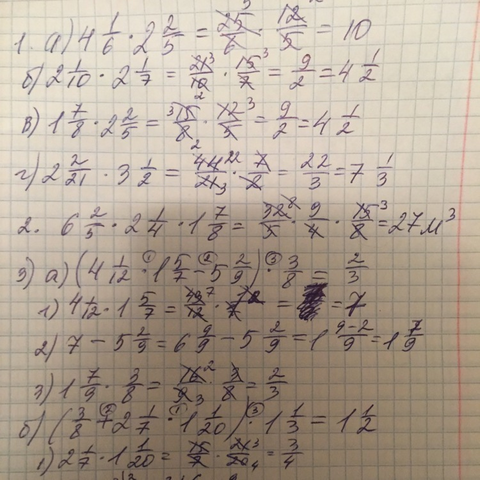 1. а) 4 1/6 · 2 2/5 = 25/6 · 12/5 = 10
б) 2 1/10 · 2 1/7 = 21/10 · 15/7 = 9/2 = 4 1/2
в) 1 7/8 · 2 2/5 = 15/8 · 12/5 = 9/2 = 4 1/2
г) 2 2/21 · 3 1/2 = 44/21 · 7/2 = 22/3 = 7 1/3
2. 6 2/5 · 2 1/4 · 1 7/8 = 32/5 · 9/4 · 15/8 = 27 м³
3) а) (4 1/12 · 1 5/7 - 5 2/9) · 3/8 = 2/3
1) 4 1/12 · 1 5/7 = 49/12 · 12/7 = 7
2) 7 - 5 2/9 = 6 9/9 - 5 2/9 = 1 9-2/9 = 1 7/9
3) 1 7/9 · 3/8 = 16/9 · 3/8 = 2/3
б) (3/8 + 2 1/7 · 1 1/20) · 1 1/3 = 1 1/2
1) 2 1/7 · 1 1/20 = 15/7 · 21/20 = 3/4